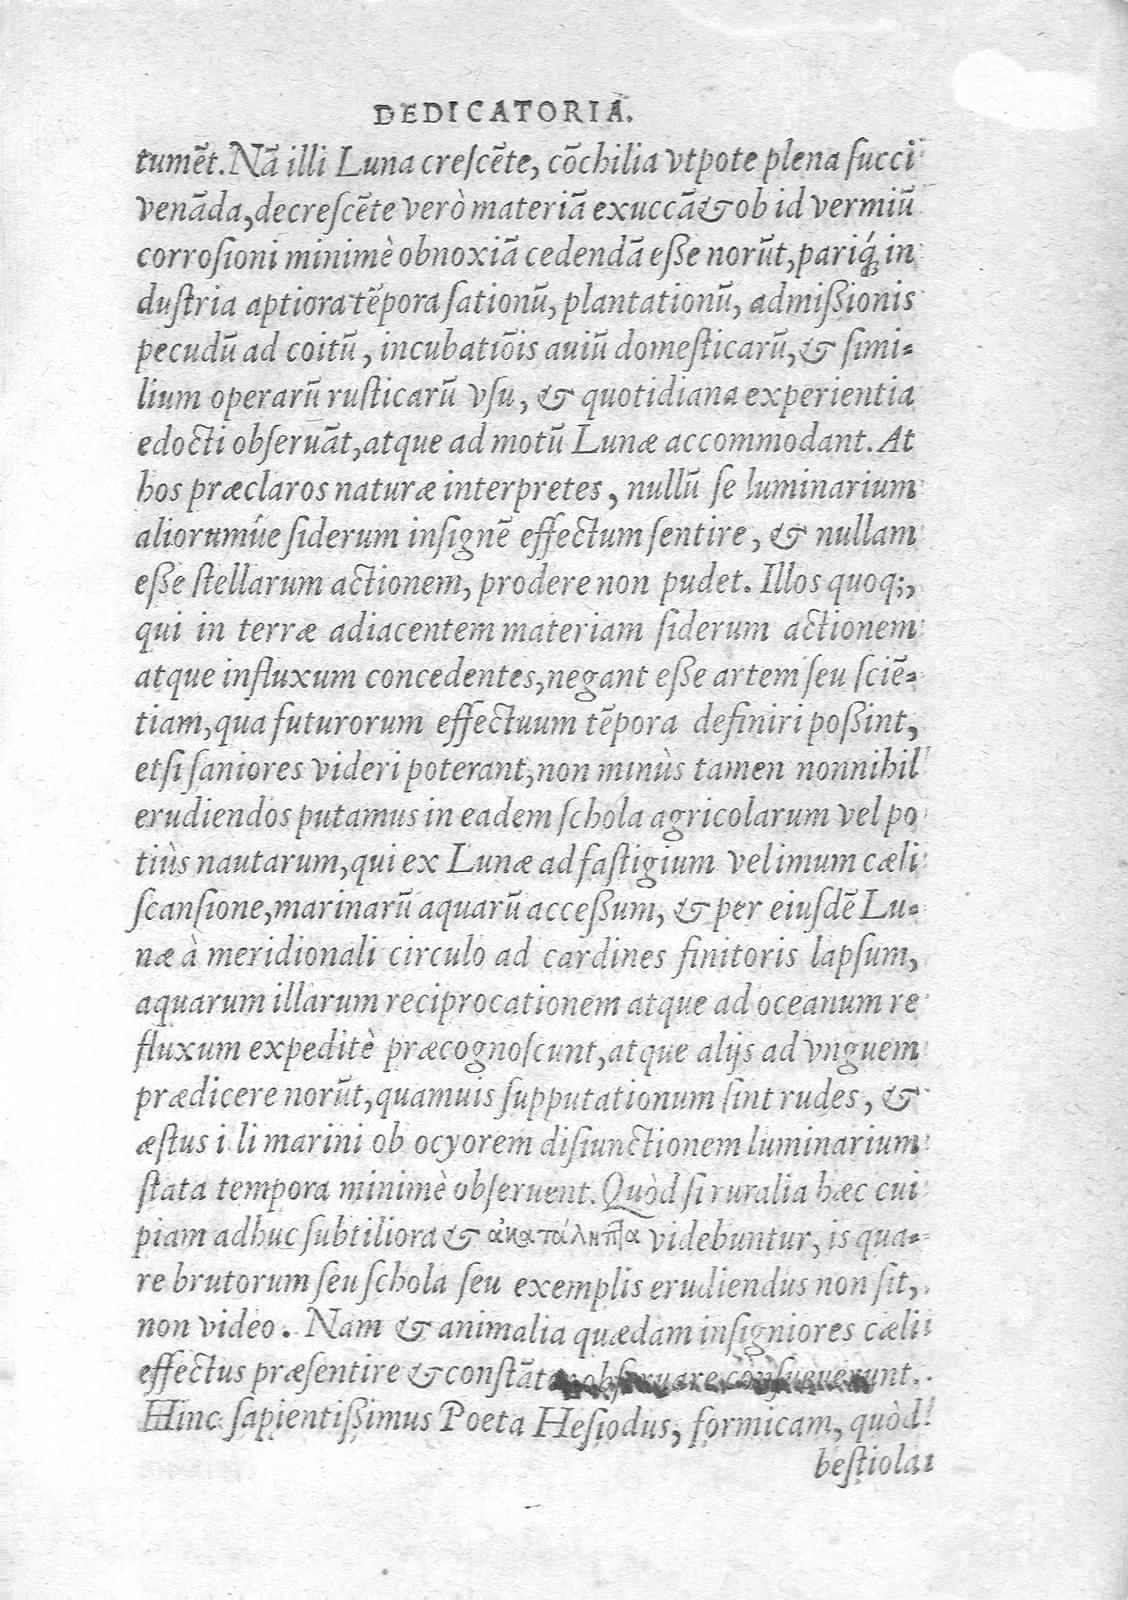 DEDICATORIA.
tumēt. Nā illi Luna creſcēte, cōchilia vtpote plena ſucci
venāda, decreſcēte verò materiā exuccā & ob id vermiū
corroſioni minimè obnoxiā cedendā eſſe norūt, pariq́ꝫ in
duſtria aptiora tēpora ſationū, plantationū, admiſſionis
pecudū ad coitū, incubatiōis auiū domeſticarū, & ſimi-
lium operarū ruſticarū vſu, & quotidiana experientia
edocti obſeruāt, atque ad motū Lunæ accommodant. At
hos præclaros naturæ interpretes, nullū ſe luminarium
aliorumúe ſiderum inſignē effectum ſentire, & nullam
eſſe ſtellarum actionem, prodere non pudet. Illos quoq;,
qui in terræ adiacentem materiam ſiderum actionem
atque influxum concedentes, negant eſſe artem ſeu ſciē-
tiam, qua futurorum effectuum tēpora definiri poſſint,
etſi ſaniores videri poterant, non minùs tamen nonnihil
erudiendos putamus in eadem ſchola agricolarum vel po
tiùs nautarum, qui ex Lunæ ad faſtigium vel imum cæli
ſcanſione, marinarū aquarū acceſſum, & per eiuſdē Lu-
næ à meridionali circulo ad cardines finitoris lapſum,
aquarum illarum reciprocationem atque ad oceanum re
fluxum expeditè præcognoſcunt, atque alijs ad vnguem
prædicere norūt, quamuis ſupputationum ſint rudes, &
æſtus i li marini ob ocyorem diſiunctionem luminarium
ſtata tempora minimè obſeruent. Quòd ſi ruralia hæc cui
piam adhuc ſubtiliora & ἀκατάληπτα videbuntur, is qua-
re brutorum ſeu ſchola ſeu exemplis erudiendus non ſit,
non video. Nam & animalia quædam inſigniores cæli
effectus præſentire & conſtāter obſeruare conſueuerunt.
Hinc ſapientiſſimus Poeta Heſiodus, formicam, quòd
beſtiola